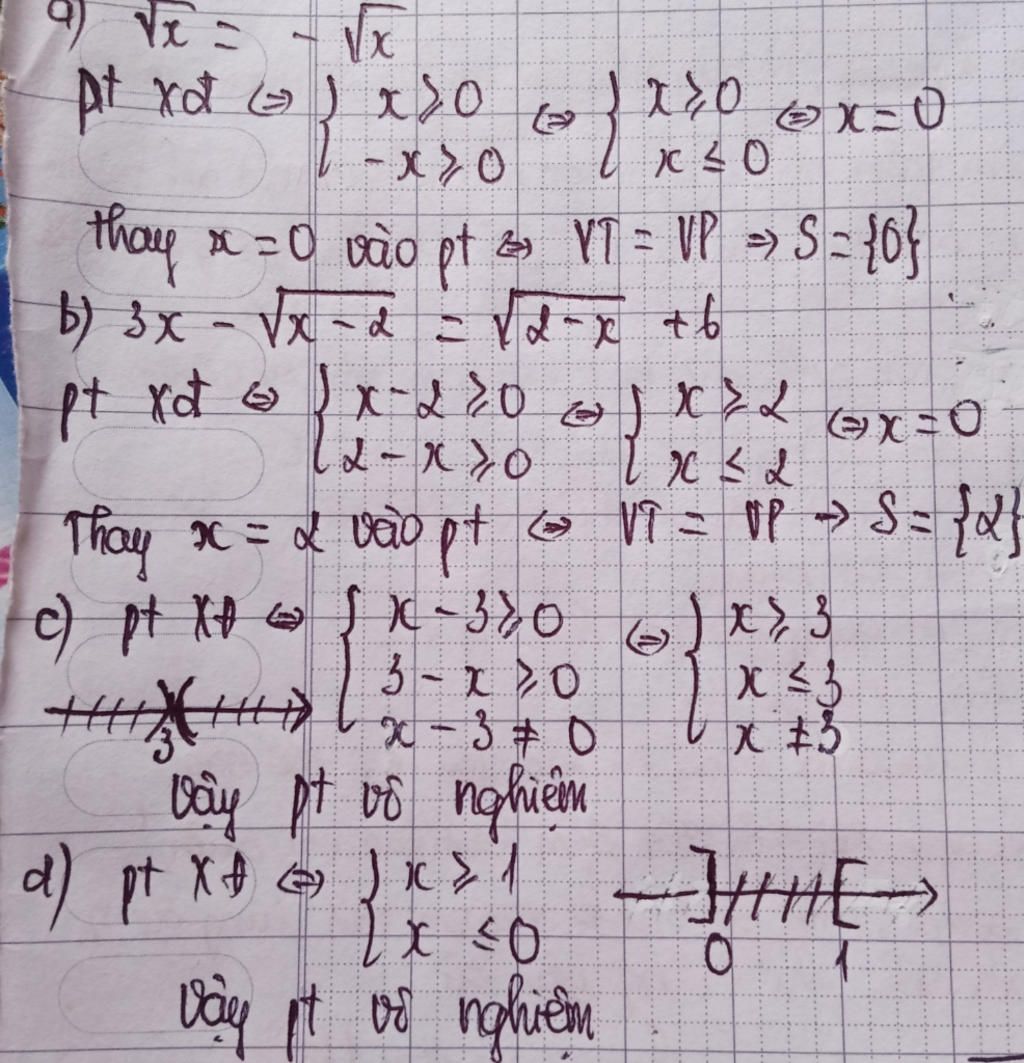 a) √x = - √x
pt xđ ⇔ { x ⩾ 0 ⇔ { x ⩾ 0 ⇔ x = 0
- x ⩾ 0 x ≤ 0
thay x = 0 vào pt ⇔ VT = VP ⇒ S = {0}
b) 3x - √(x - 2) = √(2 - x) + 6
pt xđ ⇔ { x - 2 ⩾ 0 ⇔ { x ⩾ 2 ⇔ x = 0
2 - x ⩾ 0 x ≤ 2
Thay x = 2 vào pt ⇔ VT = VP → S = {2}
c) pt XĐ ⇔ { x - 3 ⩾ 0 ⇔ { x ⩾ 3
3 - x ⩾ 0 x ≤ 3
3 x - 3 ≠ 0 x ≠ 3
Vậy pt vô nghiệm
d) pt XĐ ⇔ { x ⩾ 1
x ≤ 0 0 1
Vậy pt vô nghiệm